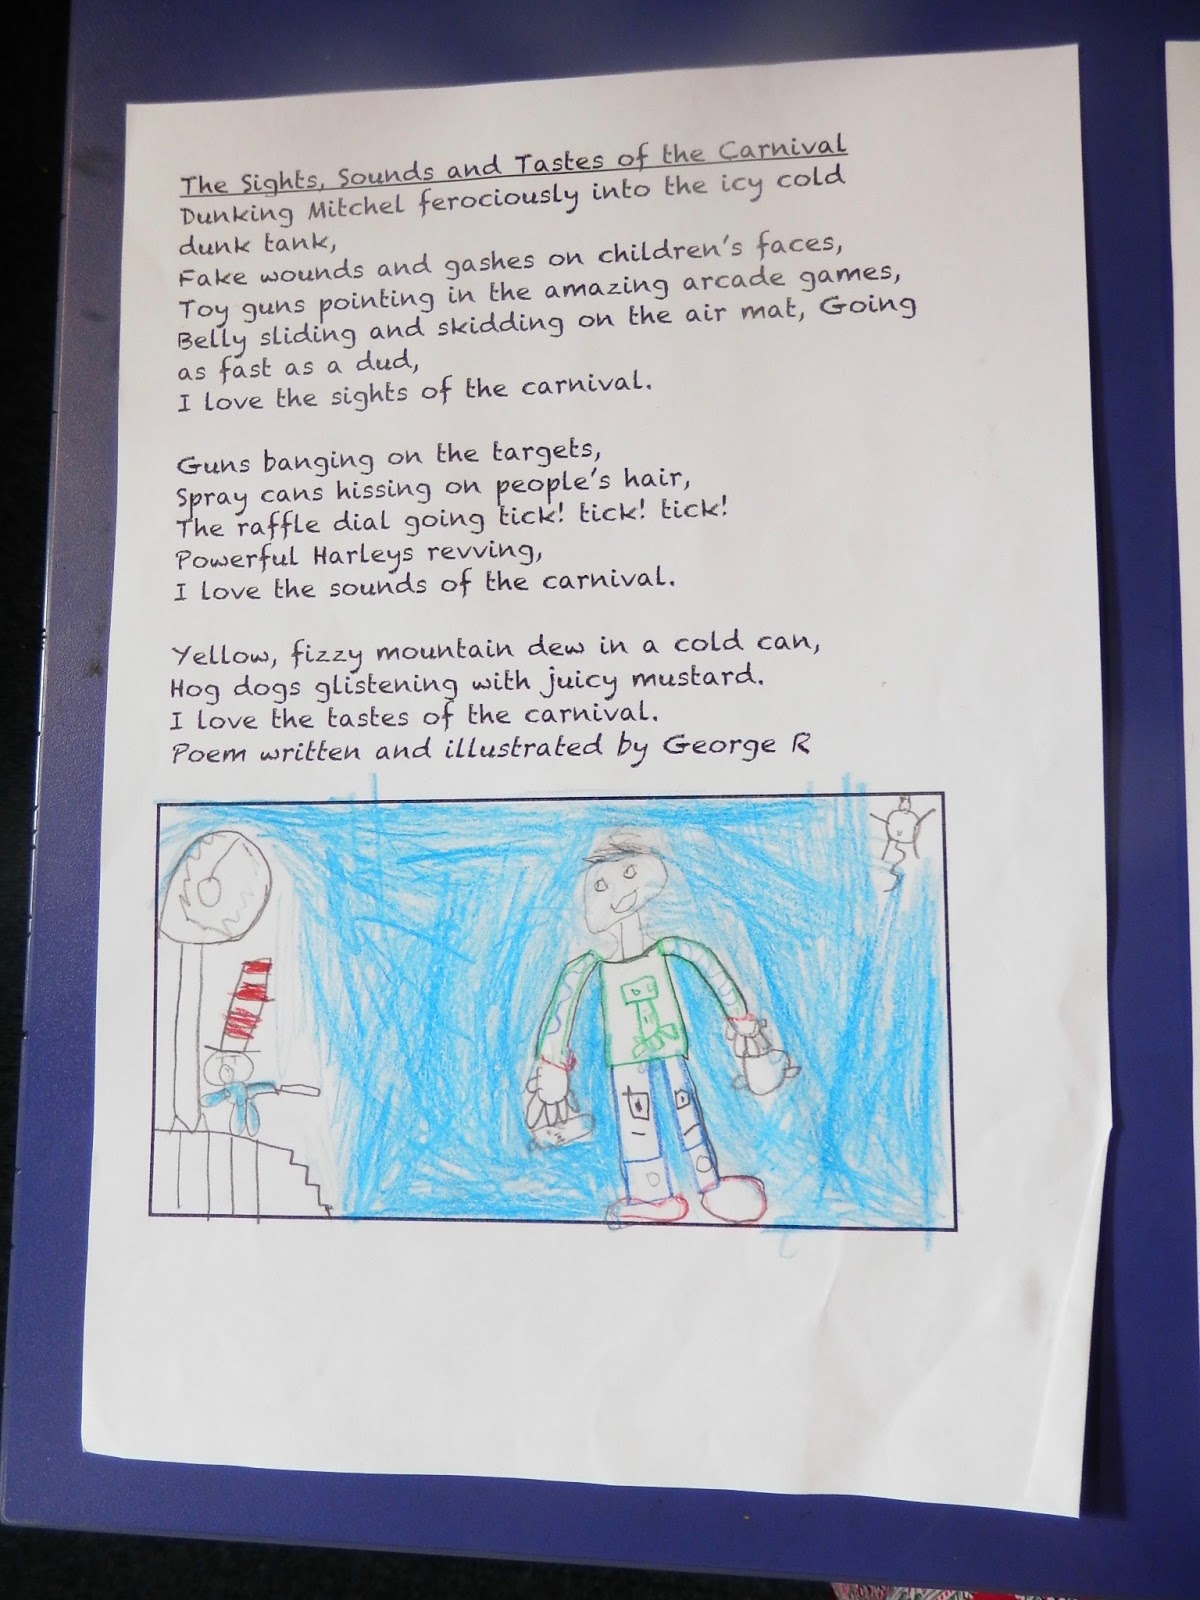 The Sights, Sounds and Tastes of the Carnival
Dunking Mitchel ferociously into the icy cold
dunk tank,
Fake wounds and gashes on children's faces,
Toy guns pointing in the amazing arcade games,
Belly sliding and skidding on the air mat, Going
as fast as a dud,
I love the sights of the carnival.
Guns banging on the targets,
Spray cans hissing on people's hair,
The raffle dial going tick! tick! tick!
Powerful Harleys revving,
I love the sounds of the carnival.
Yellow, fizzy mountain dew in a cold can,
Hog dogs glistening with juicy mustard.
I love the tastes of the carnival.
Poem written and illustrated by George R